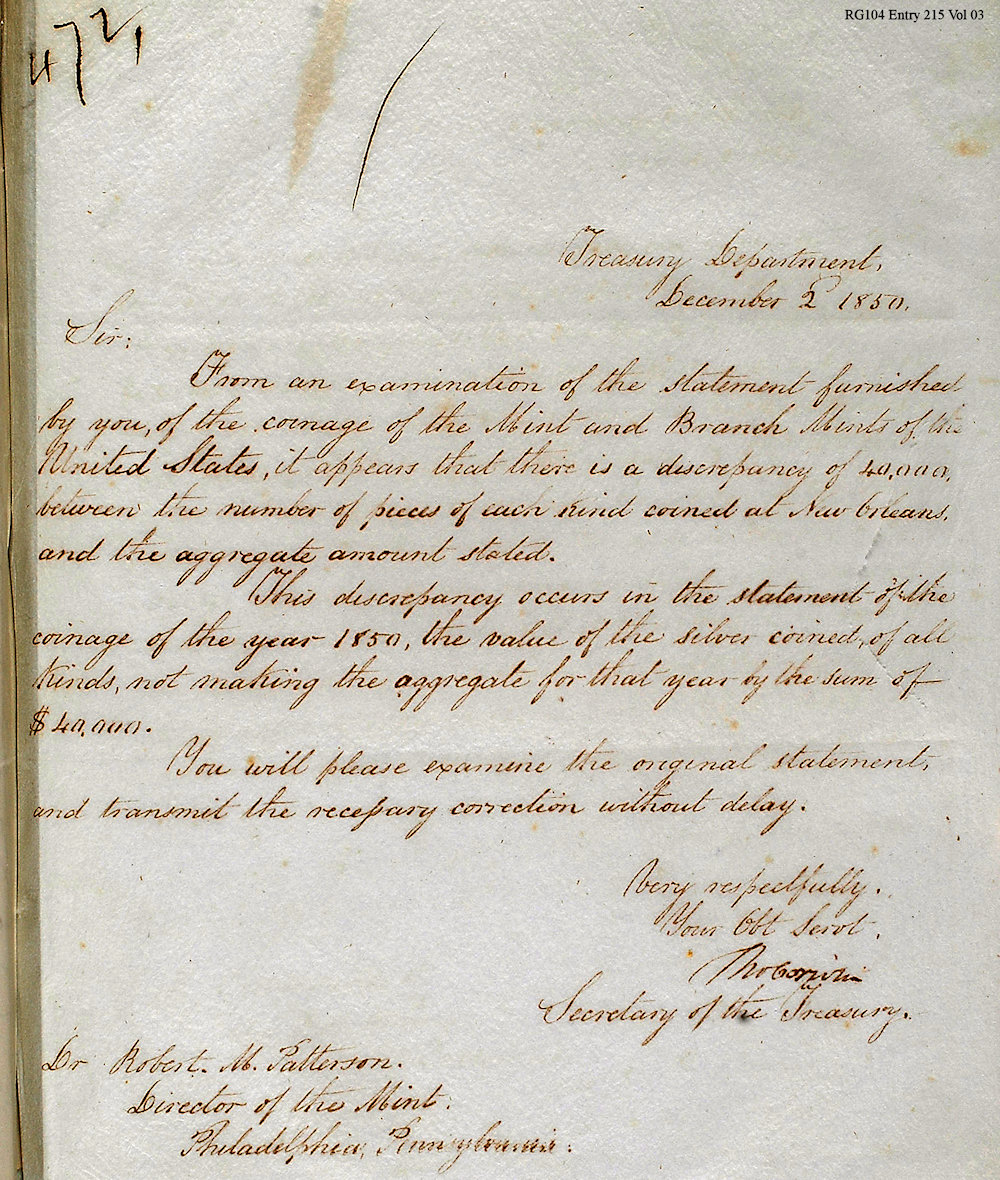 RG104 Entry 215 Vol 03
472,
Treasury Department,
December 2 1850.
Sir:
From an examination of the statement furnished
by you, of the coinage of the Mint and Branch Mints of the
United States, it appears that there is a discrepancy of 40,000,
between the number of pieces of each kind coined at New Orleans,
and the aggregate amount stated.
This discrepancy occurs in the statement of the
coinage of the year 1850, the value of the silver coined, of all
kinds, not making the aggregate for that year by the sum of
$40,000.
You will please examine the original statement,
and transmit the necessary correction without delay.
Very respectfully.
Your Obt Servt.
Tho Corwin
Secretary of the Treasury.
Dr Robert. M. Patterson.
Director of the Mint.
Philadelphia, Pennsylvania.